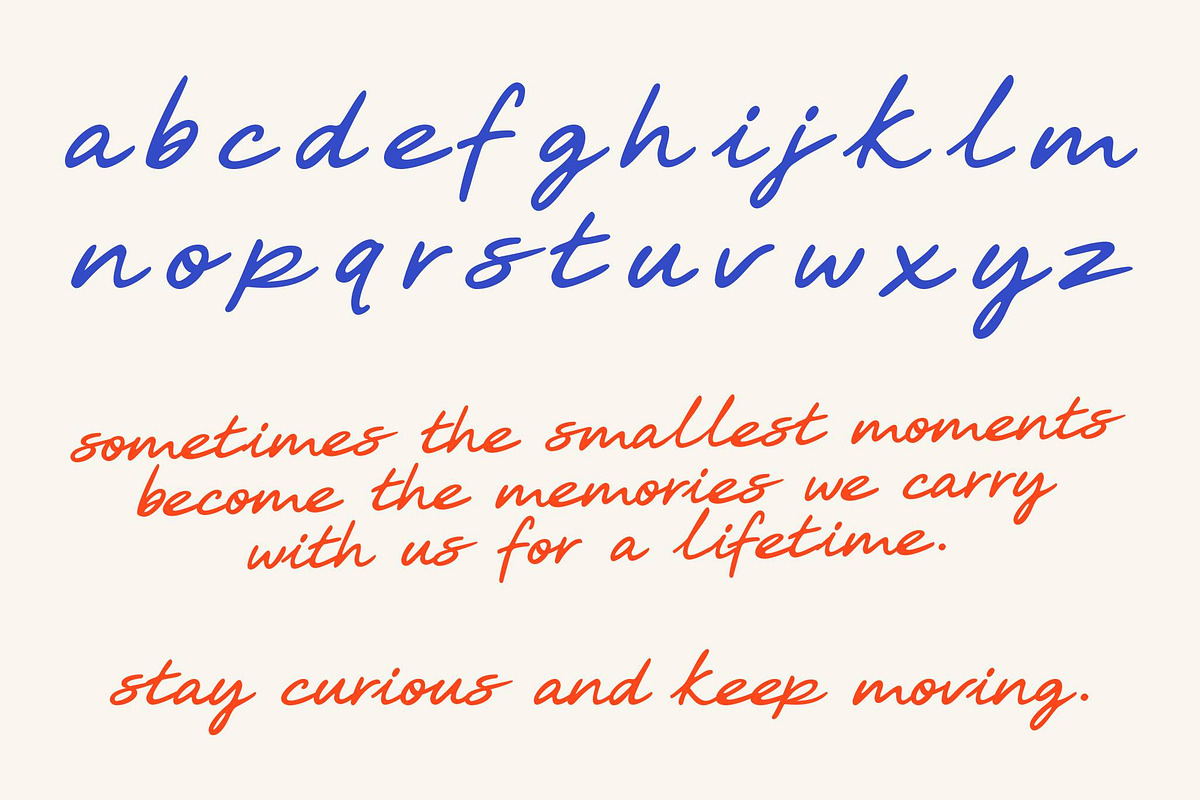 abcdefghijklm
nopqrstuvwxyz
sometimes the smallest moments
become the memories we carry
with us for a lifetime.
stay curious and keep moving.